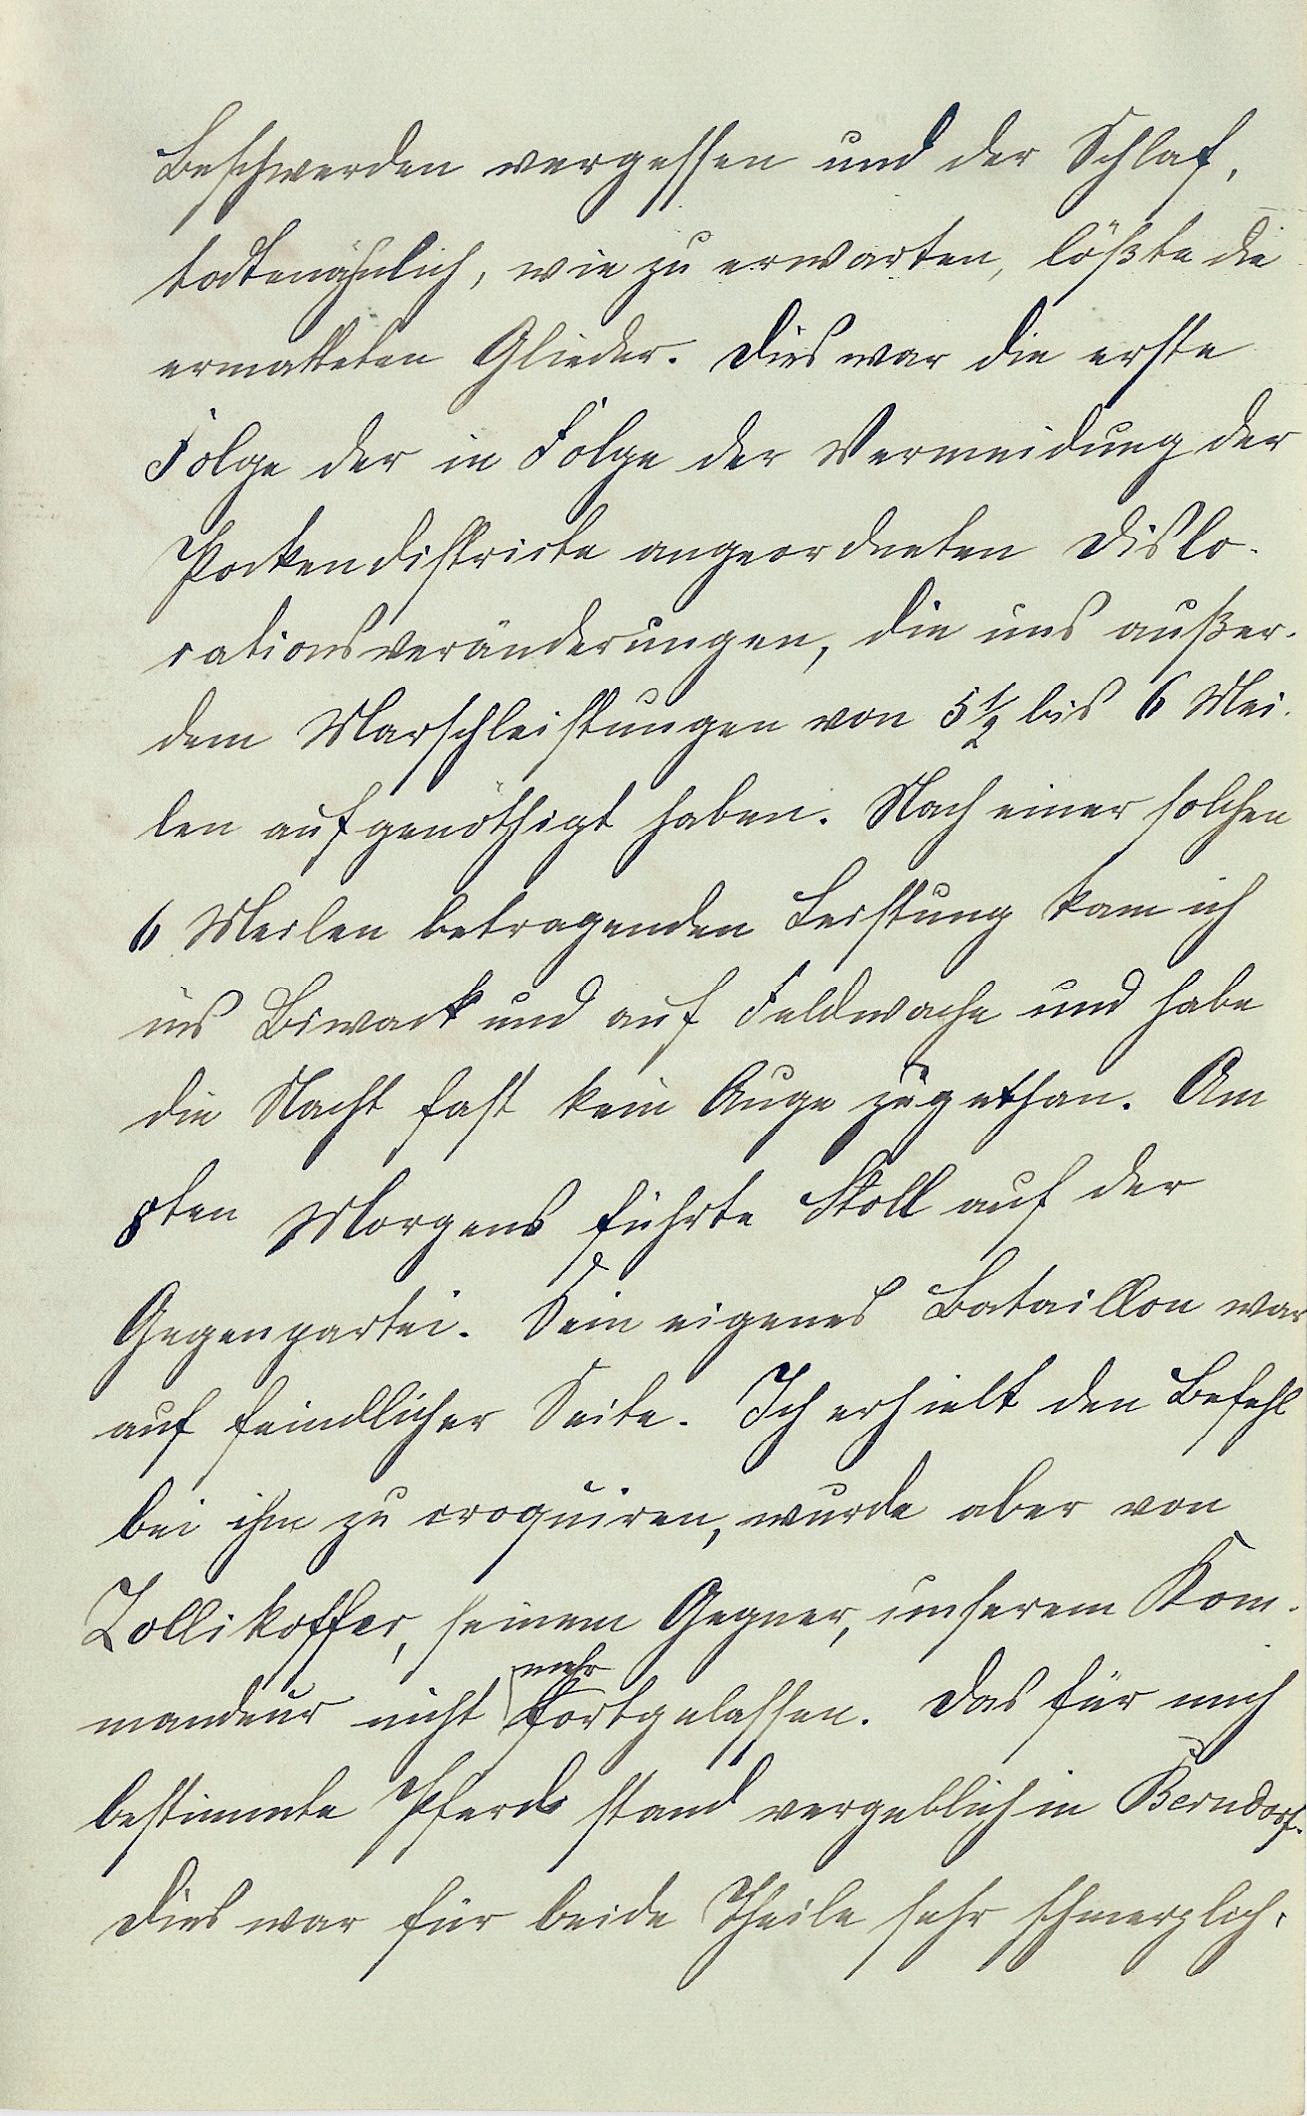 Beschwerden vergessen und der Schlaf,
todtenähnlich, wie zu erwarten, lößte die
ermatteten Glieder. Dies war die erste
Folge der in Folge der Vermeidung der
Pockendistricte angeordneten Dislo-
cationsveränderungen, die uns außer-
dem Marschleistungen von 5 ½ bis 6 Mei-
len aufgenöthigt haben. Nach einer solchen
6 Meilen betragenden Leistung kam ich
ins Biwack und auf Feldwache und habe
die Nacht fast kein Auge zugethan. Am
8ten Morgens führte Stoll auf der
Gegenpartei. Sein eigenes Bataillon war
auf feindlicher Seite. Ich erhielt den Befehl
bei ihm zu croquiren, wurde aber von
Zollikoffer, seinem Gegner, unserem Kom-
mandeur nicht mehr fortgelassen. Das für mich
bestimmte Pferd stand vergeblich in Berndorf.
Dies war für beide Theile sehr schmerzlich.